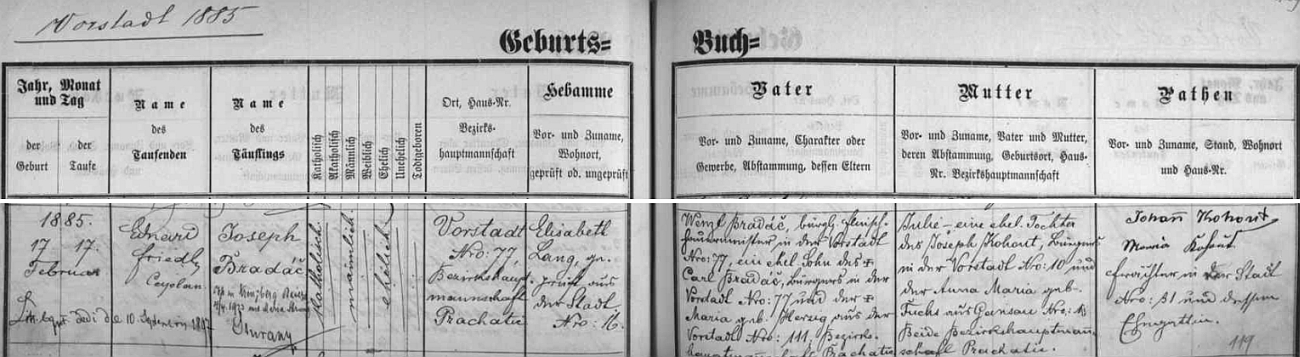 Vorstadt 1885
Geburts= Buch=
Jahr, Monat
und Tag
der
Geburt
der
Taufe
Name
des
Taufenden
Name
des
Täuflings
Katholisch
Akatholisch
Männlich
Weiblich
Ehelich
Unehelich
Todtgeboren
Ort, Haus-Nr.
Bezirks-
hauptmannschaft
Hebamme
Vor- und Zuname,
Wohnort,
geprüft od. ungeprüft
Vater
Vor- und Zuname, Charakter oder
Gewerbe, Abstammung, dessen Eltern
Mutter
Vor- und Zuname, Vater und Mutter,
deren Abstammung, Geburtsort, Haus-
Nr. Bezirkshauptmannschaft
Pathen
Vor- und Zuname, Stand, Wohnort
und Haus-Nr.
1885.
17 17.
Februar
10. September
Eduard
Friedl
Caplan
Joseph
Bradáč
katholisch
männlich
ehelich
Vorstadt
Nro: 77,
Bezirkshaupt
mannschaft
Prachatic
Elisabeth
Lang, gr.
prüft aus
der Stadt
Nro: 16.
Wenzl Bradáč, bürgl. Fleisch-
hauermeister in der Vorstadt
Nro: 77, ein ehel. Sohn des
Carl Bradáč, Bürgers in der
Vorstadt Nro: 77 und der
Maria geb. Herzog aus der
Vorstadt Nro: 111, Bezirks-
Prachatic
Julie – eine ehel. Tochter
des Joseph Kohout, Bürgers
in der Vorstadt Nro: 10 und
der Anna Maria geb.
Fuchs aus Nro:
Beide Bezirkshauptman-
schaft Prachatic.
Johann Kohout
Maria Kohout
in der Stadt
Nro: 31 und dessen
Ehegattin.
119